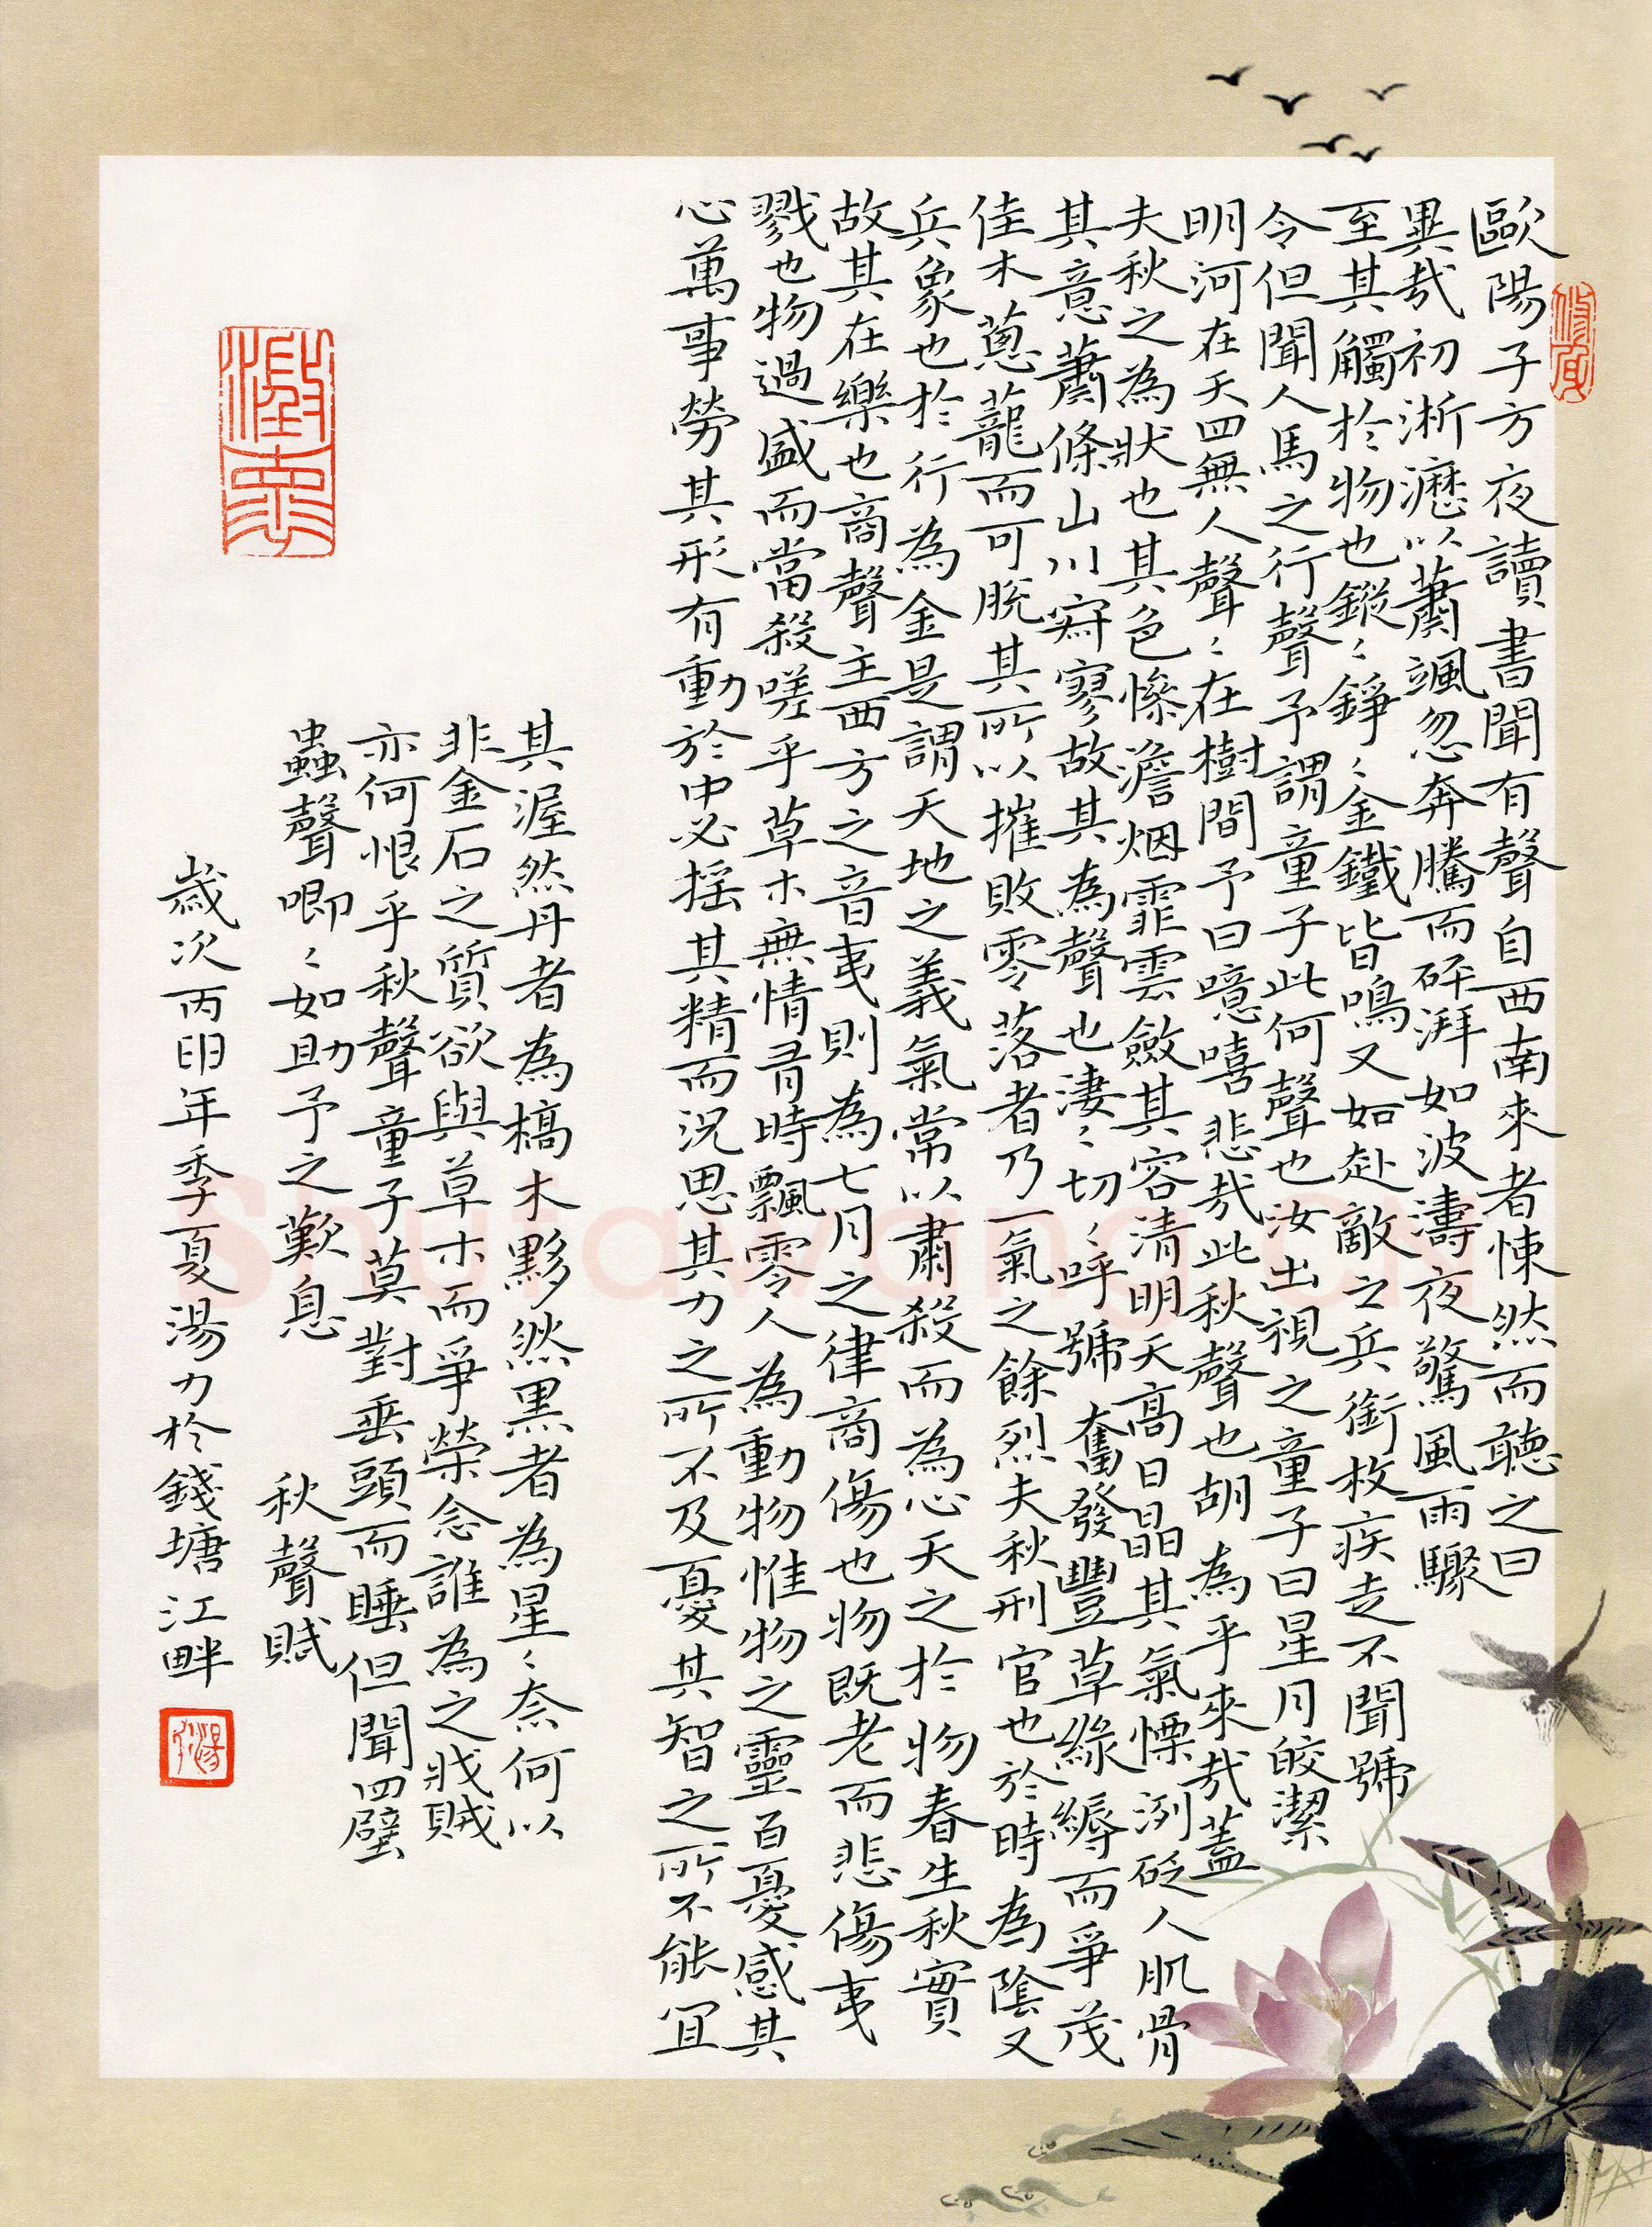 歐陽子方夜讀書聞有聲自西南來者悚然而聽之曰
異哉初淅瀝以蕭颯忽奔騰而砰湃如波濤夜驚風雨驟
至其觸於物也鏦〻錚〻金鐵皆鳴又如赴敵之兵銜枚疾走不聞號
令但聞人馬之行聲予謂童子此何聲也汝出視之童子曰星月皎潔
明河在天四無人聲〻在樹間予曰噫嘻悲哉此秋聲也胡為乎來哉蓋
夫秋之為狀也其色慘澹烟霏雲斂其容清明天高日晶其氣慄冽砭人肌骨
其意蕭條山川寂寥故其為聲也淒〻切〻呼號奮發豐草綠縟而爭茂
佳木蔥蘢而可脫其所以摧敗零落者乃一氣之餘烈夫秋刑官也於時為陰又
兵象也於行為金是謂天地之義氣常以肅殺而為心天之於物春生秋實
故其在樂也商聲主西方之音夷則為七月之律商傷也物既老而悲傷夷
戮也物過盛而當殺嗟乎草木無情有時飄零人為動物惟物之靈百憂感其
心萬事勞其形有動於中必搖其精而況思其力之所不及憂其智之所不能宜
其渥然丹者為槁木黟然黑者為星〻奈何以
非金石之質欲與草木而爭榮念誰為之戕賊
亦何恨乎秋聲童子莫對垂頭而睡但聞四壁
蟲聲唧〻如助予之歎息 秋聲賦
歲次丙申年季夏湯力於錢塘江畔
Shufawang.cn